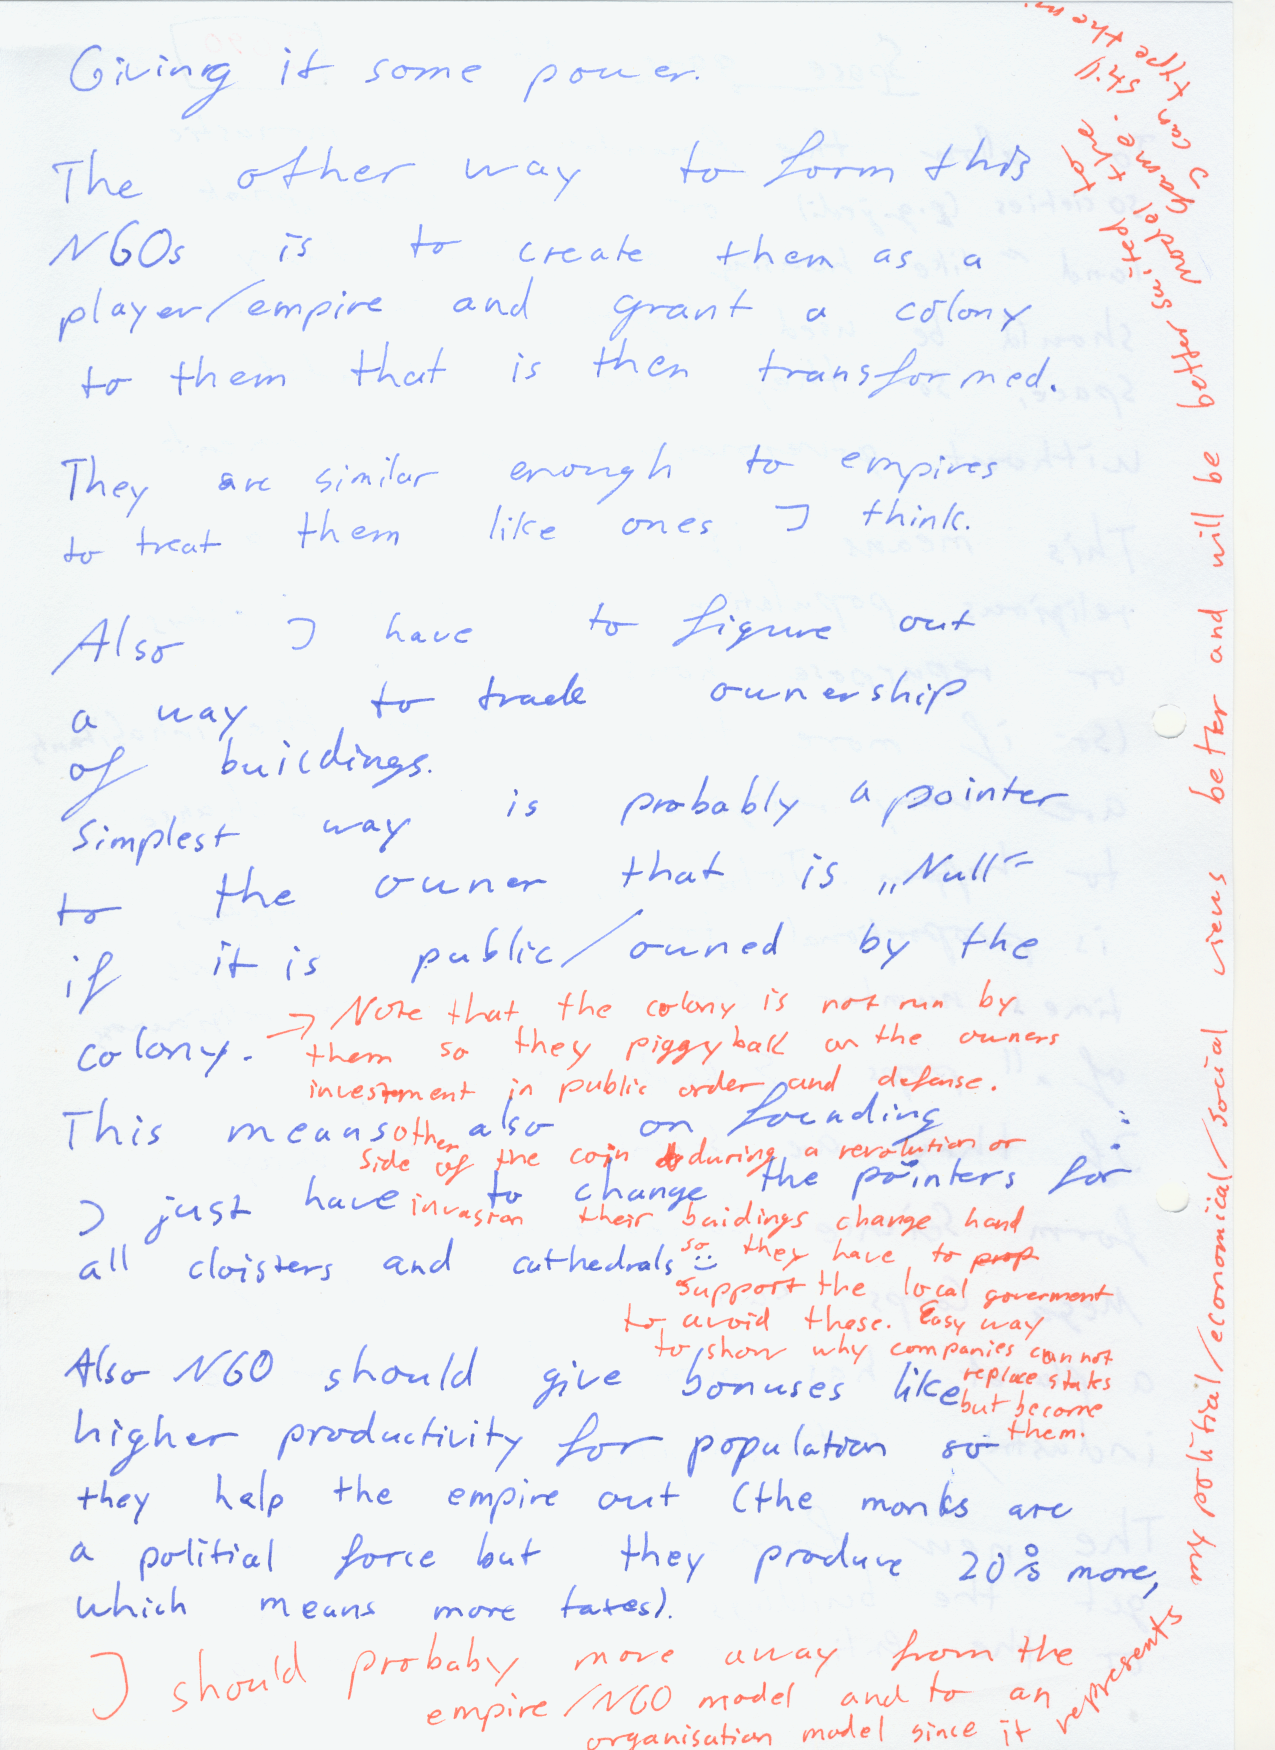 Giving it some power.
The other way to form this
NGOs is to create them as a
player/empire and grant a colony
to them that is then transformed.
They are similar enough to empires
to treat them like ones I think.
Also I have to figure out
a way to trade ownership
of buildings.
Simplest way is probably a pointer
to the owner that is „Null"
if it is public/owned by the
colony.
This means also on founding :
I just have to change the pointers for
all cloisters and cathedrals :)
→ Note that the colony is not run by
them so they piggyback on the owners
investment in public order and defense.
other
side of the coin during a revolution or
invasion their buildings change hand
so they have to prop
support the local goverment
to avoid these. Easy way
to show why companies can not
replace states
but become
them.
Also NGO should give bonuses like
higher productivity for population so
they help the empire out (the monks are
a politial force but they produce 20% more,
which means more taxes).
I should probaby move away from the
empire/NGO model and to an
organisation model since it represents
my political/economical/social views better and will be better suited to
model the
game. I can type them